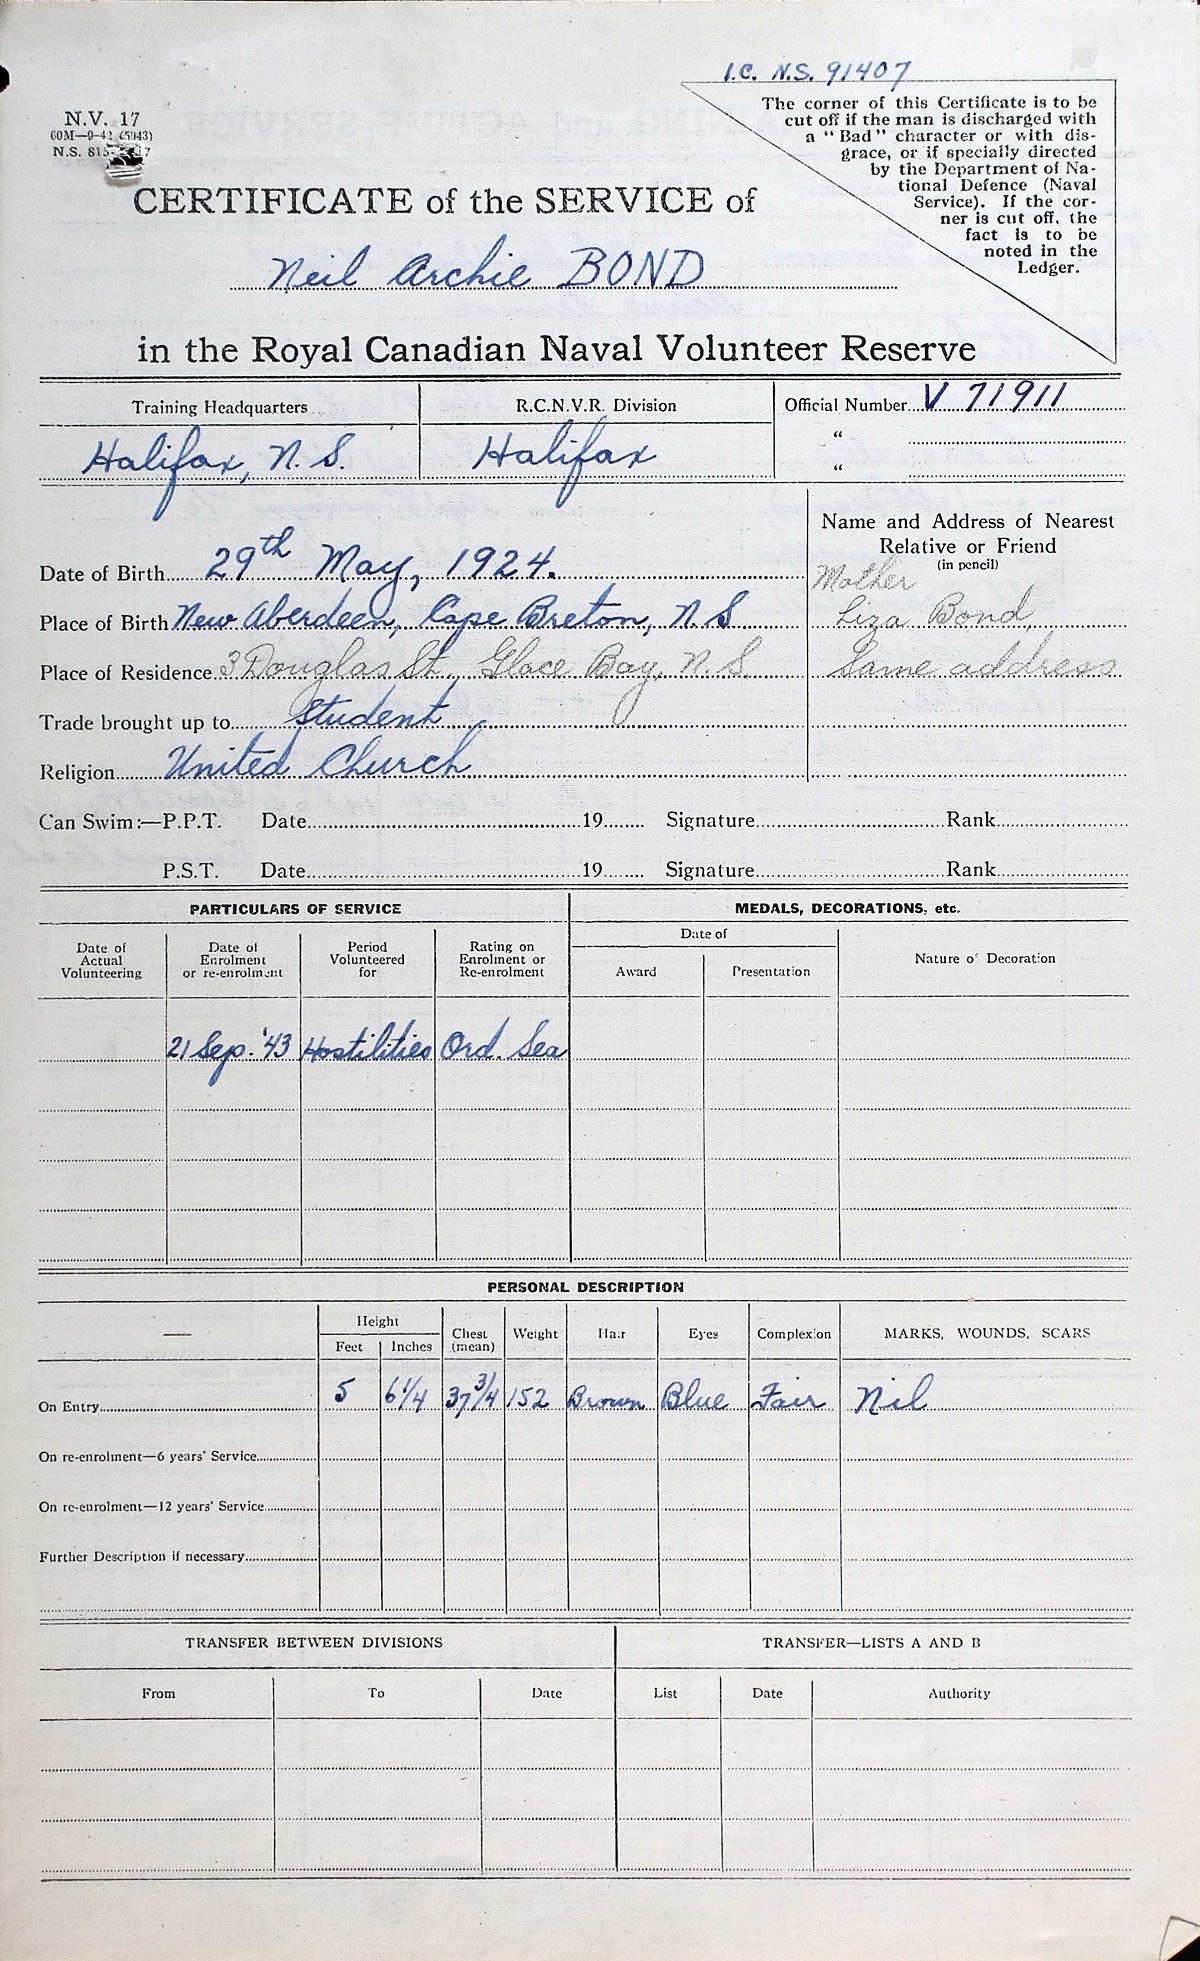 I.C. N.S. 91407
N.V. 17
60M—9-42 (5943)
N.S. 815-
The corner of this Certificate is to be
cut off if the man is discharged with
a "Bad" character or with dis-
grace, or if specially directed
by the Department of Na-
tional Defence (Naval
Service). If the cor-
ner is cut off, the
fact is to be
noted in the
Ledger.
CERTIFICATE of the SERVICE of
Neil Archie BOND
in the Royal Canadian Naval Volunteer Reserve
Training Headquarters R.C.N.V.R. Division Official Number V 71911
Halifax, N.S. Halifax "
"
Name and Address of Nearest
Relative or Friend
(in pencil)
Date of Birth 29th May, 1924. Mother
Place of Birth New Aberdeen, Cape Breton, N.S Liza Bond,
Place of Residence 3 Douglas St., Glace Bay, N.S. Same address
Trade brought up to Student
Religion United Church
Can Swim:—P.P.T. Date 19 Signature Rank
P.S.T. Date 19 Signature Rank
PARTICULARS OF SERVICE MEDALS, DECORATIONS, etc.
Date of Actual Volunteering Date of Enrolment or re-enrolment Period Volunteered for Rating on Enrolment or Re-enrolment Date of Nature of Decoration
Award Presentation
21 Sep. '43 Hostilities Ord. Sea
PERSONAL DESCRIPTION
— Height Chest (mean) Weight Hair Eyes Complexion MARKS, WOUNDS, SCARS
Feet Inches
On Entry 5 6 1/4 37 3/4 152 Brown Blue Fair Nil
On re-enrolment—6 years' Service
On re-enrolment—12 years' Service
Further Description if necessary
TRANSFER BETWEEN DIVISIONS TRANSFER—LISTS A AND B
From To Date List Date Authority